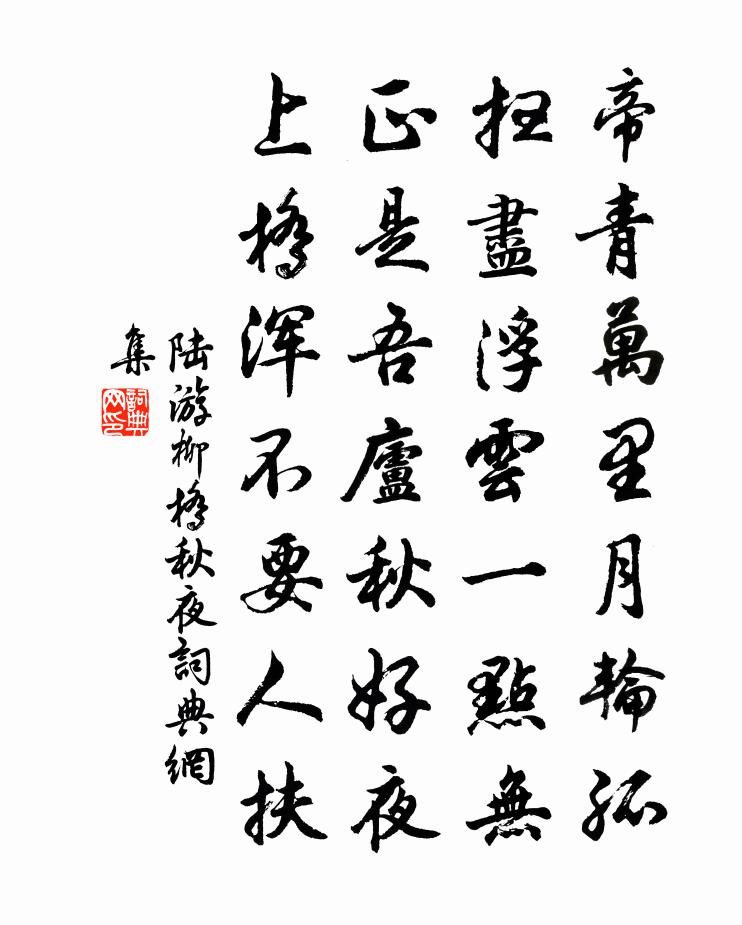 帝青萬里月輪孤
扫盡浮雲一點無
正是吾廬秋好夜
上橋渾不要人扶
陸游柳橋秋夜詞典網
集
詞典網印